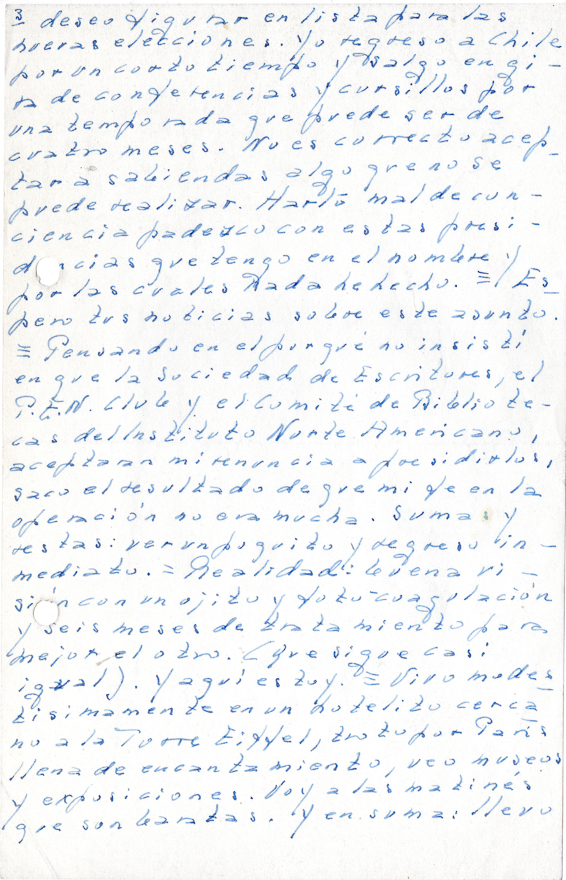 3 deseo figurar en lista para las
nuevas elecciones. Yo regreso a Chile
por un corto tiempo y salgo en gi-
ra de conferencias y cursillos por
una temporada que puede ser de
cuatro meses. No es correcto acep-
tar a sabiendas algo que no se
puede realizar. Harto mal de con-
ciencia padezco con estas presi-
d ncias que tengo en el nombre y
por las cuales nada he hecho. ≡ / Es-
pero tus noticias sobre este asunto.
≡ Pensando en el porqué no insistí
en que la Sociedad de Escritores, el
P.E.N. Club y el Comité de Bibliote-
cas del Instituto Norte Americano,
aceptaran mi renuncia a presidirlos,
saco el resultado de que mi fe en la
operación no era mucha. Suma y
restas: ver un poquito y regreso in-
mediato. = Realidad: buena vi-
sión con un ojito y foto-coagulación
y seis meses de tratamiento para
mejor el otro. (que sigue casi
igual). Y aquí estoy. ≡ Vivo modes-
tisimamente en un hotelito cerca
no a la Torre Eiffel, troto por París
llena de encantamiento, veo museos
y exposiciones. Voy a las matinés
que son baratas. Y en suma: llevo